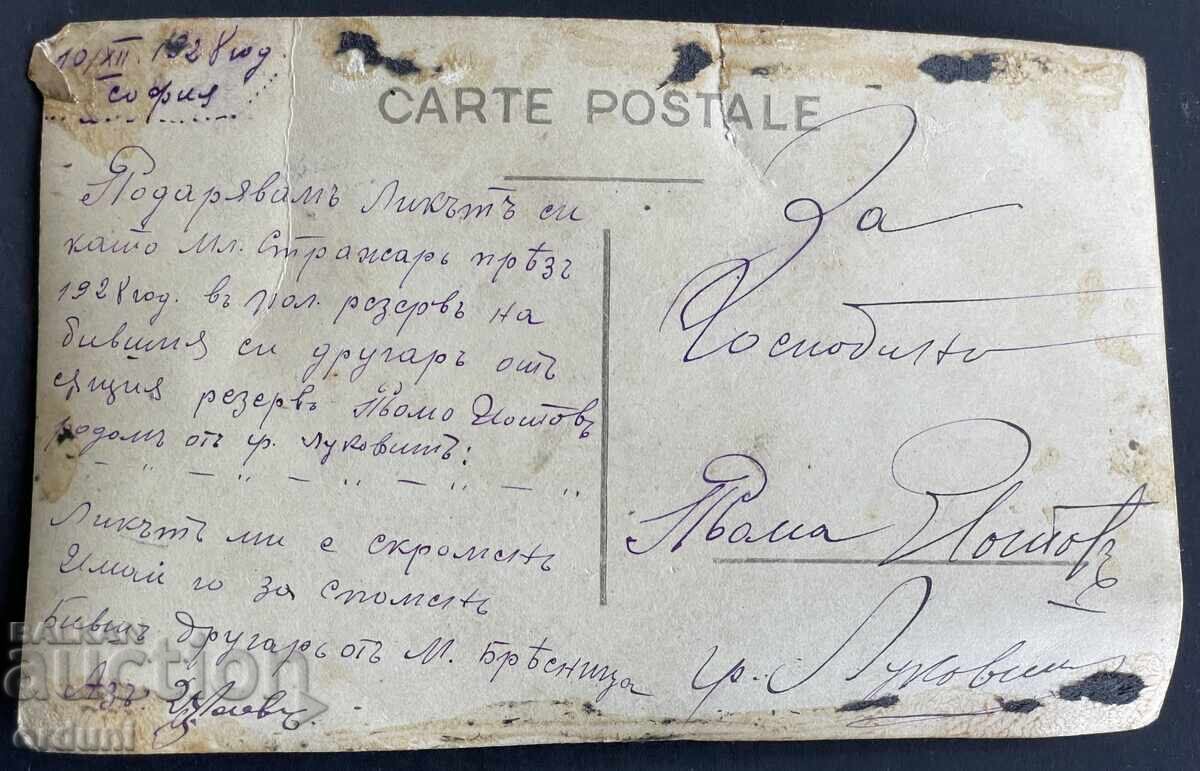 10/XII. 1928 год.
София
CARTE POSTALE
Подарявамъ Ликътъ си
като Мл. Стражарь прѣзъ
1928 год. въ пол. резервъ на
бившия си другарь отъ
сѫщия резервъ Пѣто Йотовъ
родомъ отъ гр. Луковитъ:
Ликътъ ми е скроменъ
Имай го за споменъ
Бившъ другарь отъ М. Брѣсница
Азъ:
За
Господинъ
Йотовъ
гр. Луковит
BALKAN
auction
orduni